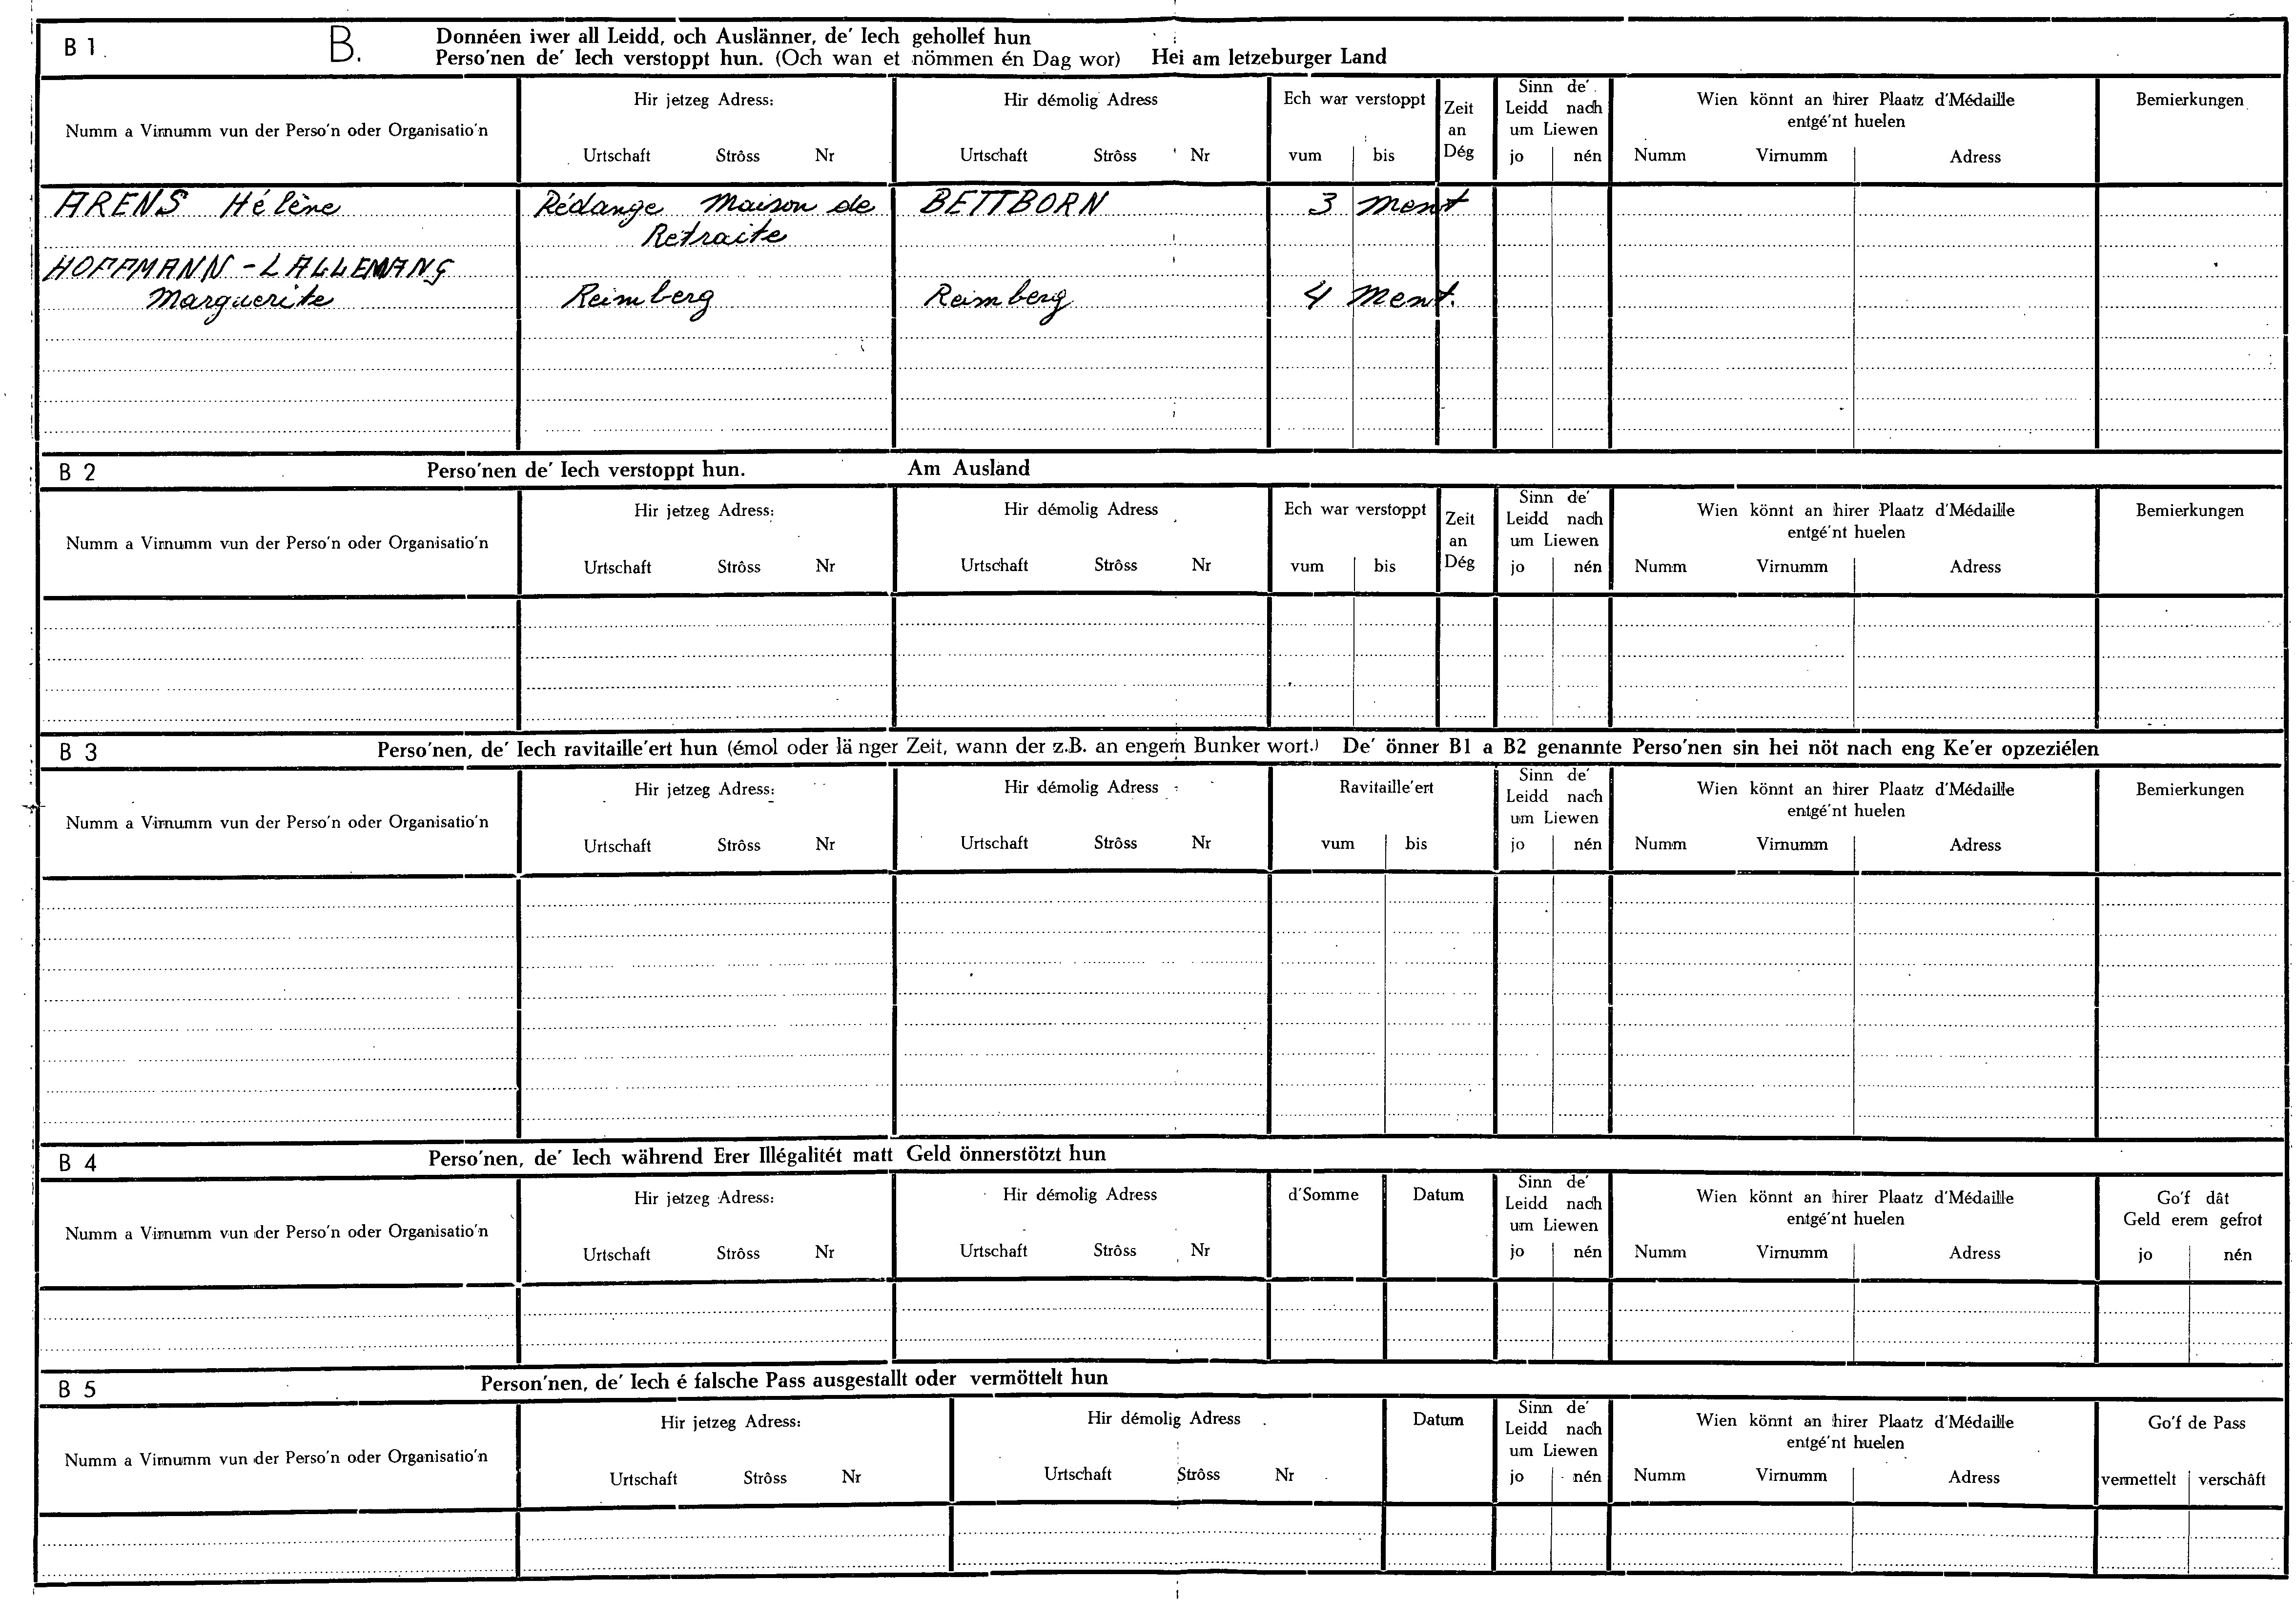 B 1 B. Donnéen iwer all Leidd, och Auslänner, de' Iech gehollef hun
Perso'nen de' Iech verstoppt hun. (Och wan et nömmen én Dag wor) Hei am letzeburger Land
Numm a Virnumm vun der Perso'n oder Organisatio'n
Hir jetzeg Adress:
Urtschaft Strôss Nr
Hir démolig Adress
Urtschaft Strôss Nr
Ech war verstoppt
vum bis
Zeit
an
Dég
Sinn de'
Leidd nach
um Liewen
jo nén
Wien könnt an hirer Plaatz d'Médaille
entgé'nt huelen
Numm Virnumm Adress
Bemierkungen
ARENS Hélène Rédange Maison de BETTBORN 3 Ment
Retraite
HOFFMANN-LALLEMANG
Marguerite Reimberg Reimberg 4 Ment.
B 2 Perso'nen de' Iech verstoppt hun. Am Ausland
Numm a Virnumm vun der Perso'n oder Organisatio'n
Hir jetzeg Adress:
Urtschaft Strôss Nr
Hir démolig Adress
Urtschaft Strôss Nr
Ech war verstoppt
vum bis
Zeit
an
Dég
Sinn de'
Leidd nach
um Liewen
jo nén
Wien könnt an hirer Plaatz d'Médaille
entgé'nt huelen
Numm Virnumm Adress
Bemierkungen
B 3 Perso'nen, de' Iech ravitaille'ert hun (émol oder länger Zeit, wann der z.B. an engem Bunker wort.) De' önner B1 a B2 genannte Perso'nen sin hei nöt nach eng Ke'er opzeziélen
Numm a Virnumm vun der Perso'n oder Organisatio'n
Hir jetzeg Adress:
Urtschaft Strôss Nr
Hir démolig Adress
Urtschaft Strôss Nr
Ravitaille'ert
vum bis
Sinn de'
Leidd nach
um Liewen
jo nén
Wien könnt an hirer Plaatz d'Médaille
entgé'nt huelen
Numm Virnumm Adress
Bemierkungen
B 4 Perso'nen, de' Iech während Erer Illégalitét matt Geld önnerstötzt hun
Numm a Virnumm vun der Perso'n oder Organisatio'n
Hir jetzeg Adress:
Urtschaft Strôss Nr
Hir démolig Adress
Urtschaft Strôss Nr
d'Somme
Datum
Sinn de'
Leidd nach
um Liewen
jo nén
Wien könnt an hirer Plaatz d'Médaille
entgé'nt huelen
Numm Virnumm Adress
Go'f dât
Geld erem gefrot
jo nén
B 5 Person'nen, de' Iech é falsche Pass ausgestallt oder vermöttelt hun
Numm a Virnumm vun der Perso'n oder Organisatio'n
Hir jetzeg Adress:
Urtschaft Strôss Nr
Hir démolig Adress
Urtschaft Strôss Nr
Datum
Sinn de'
Leidd nach
um Liewen
jo nén
Wien könnt an hirer Plaatz d'Médaille
entgé'nt huelen
Numm Virnumm Adress
Go'f de Pass
vermettelt verschâft